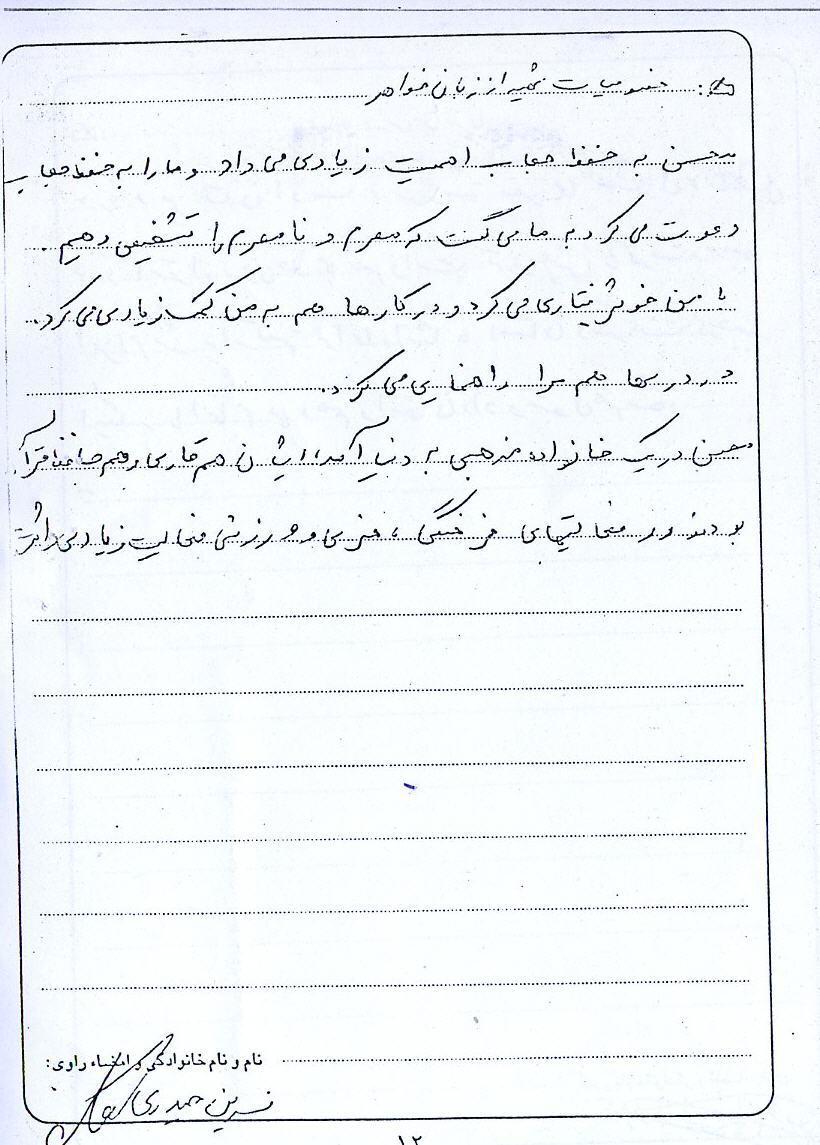 خصوصیات شهید از زبان خواهر
محسن به حفظ حجاب اهمیت زیادی می داد و ما را به حفظ حجاب
دعوت می کرد به ما می گفت که محرم و نا محرم را تشخیص دهیم.
با من خوش رفتاری می کرد و در کارها هم به من کمک زیادی می کرد.
در درسها هم مرا راهنمایی می کرد.
محسن در یک خانواده مذهبی به دنیا آمد، ایشان هم قاری و هم حافظ قرآن
بودند و در فعالیتهای فرهنگی، هنری و ورزشی فعالیت زیادی داشت
نام و نام خانوادگی و امضاء راوی:
نسرین حیدری
۱۲